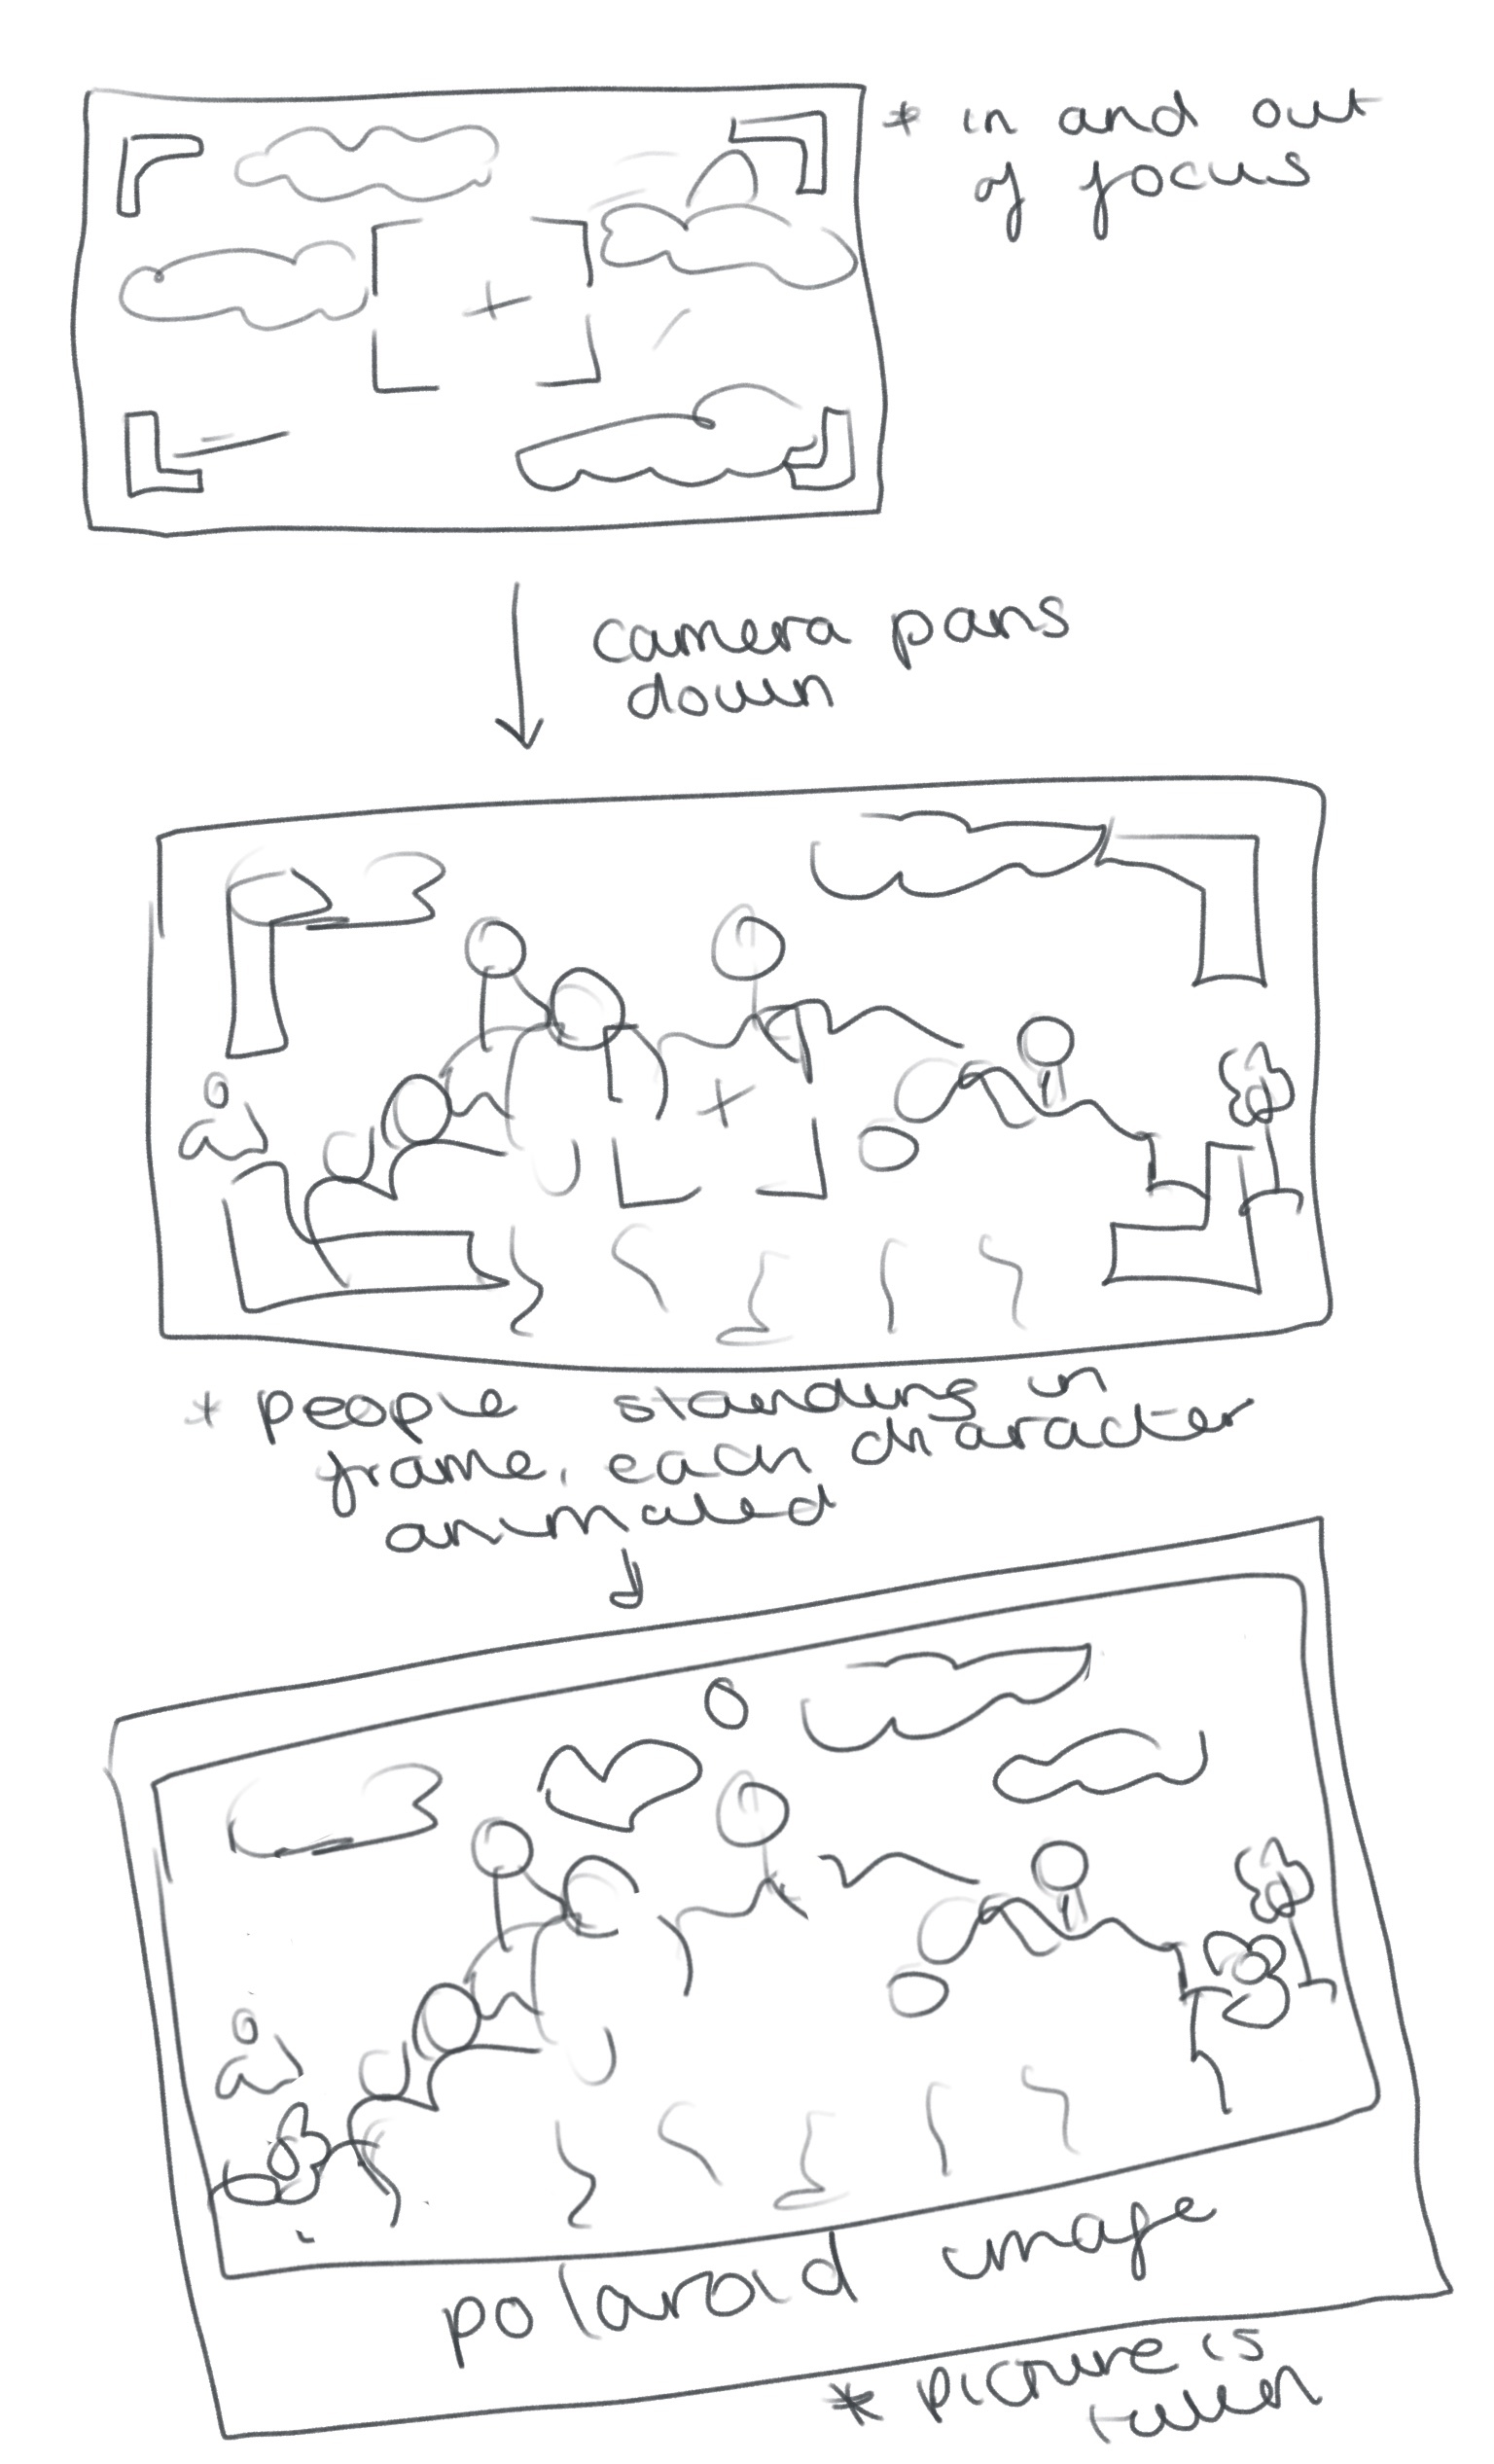 * in and out
of focus
camera pans
down
* people standing in
frame, each character
animated
polaroid image
* picture is
taken